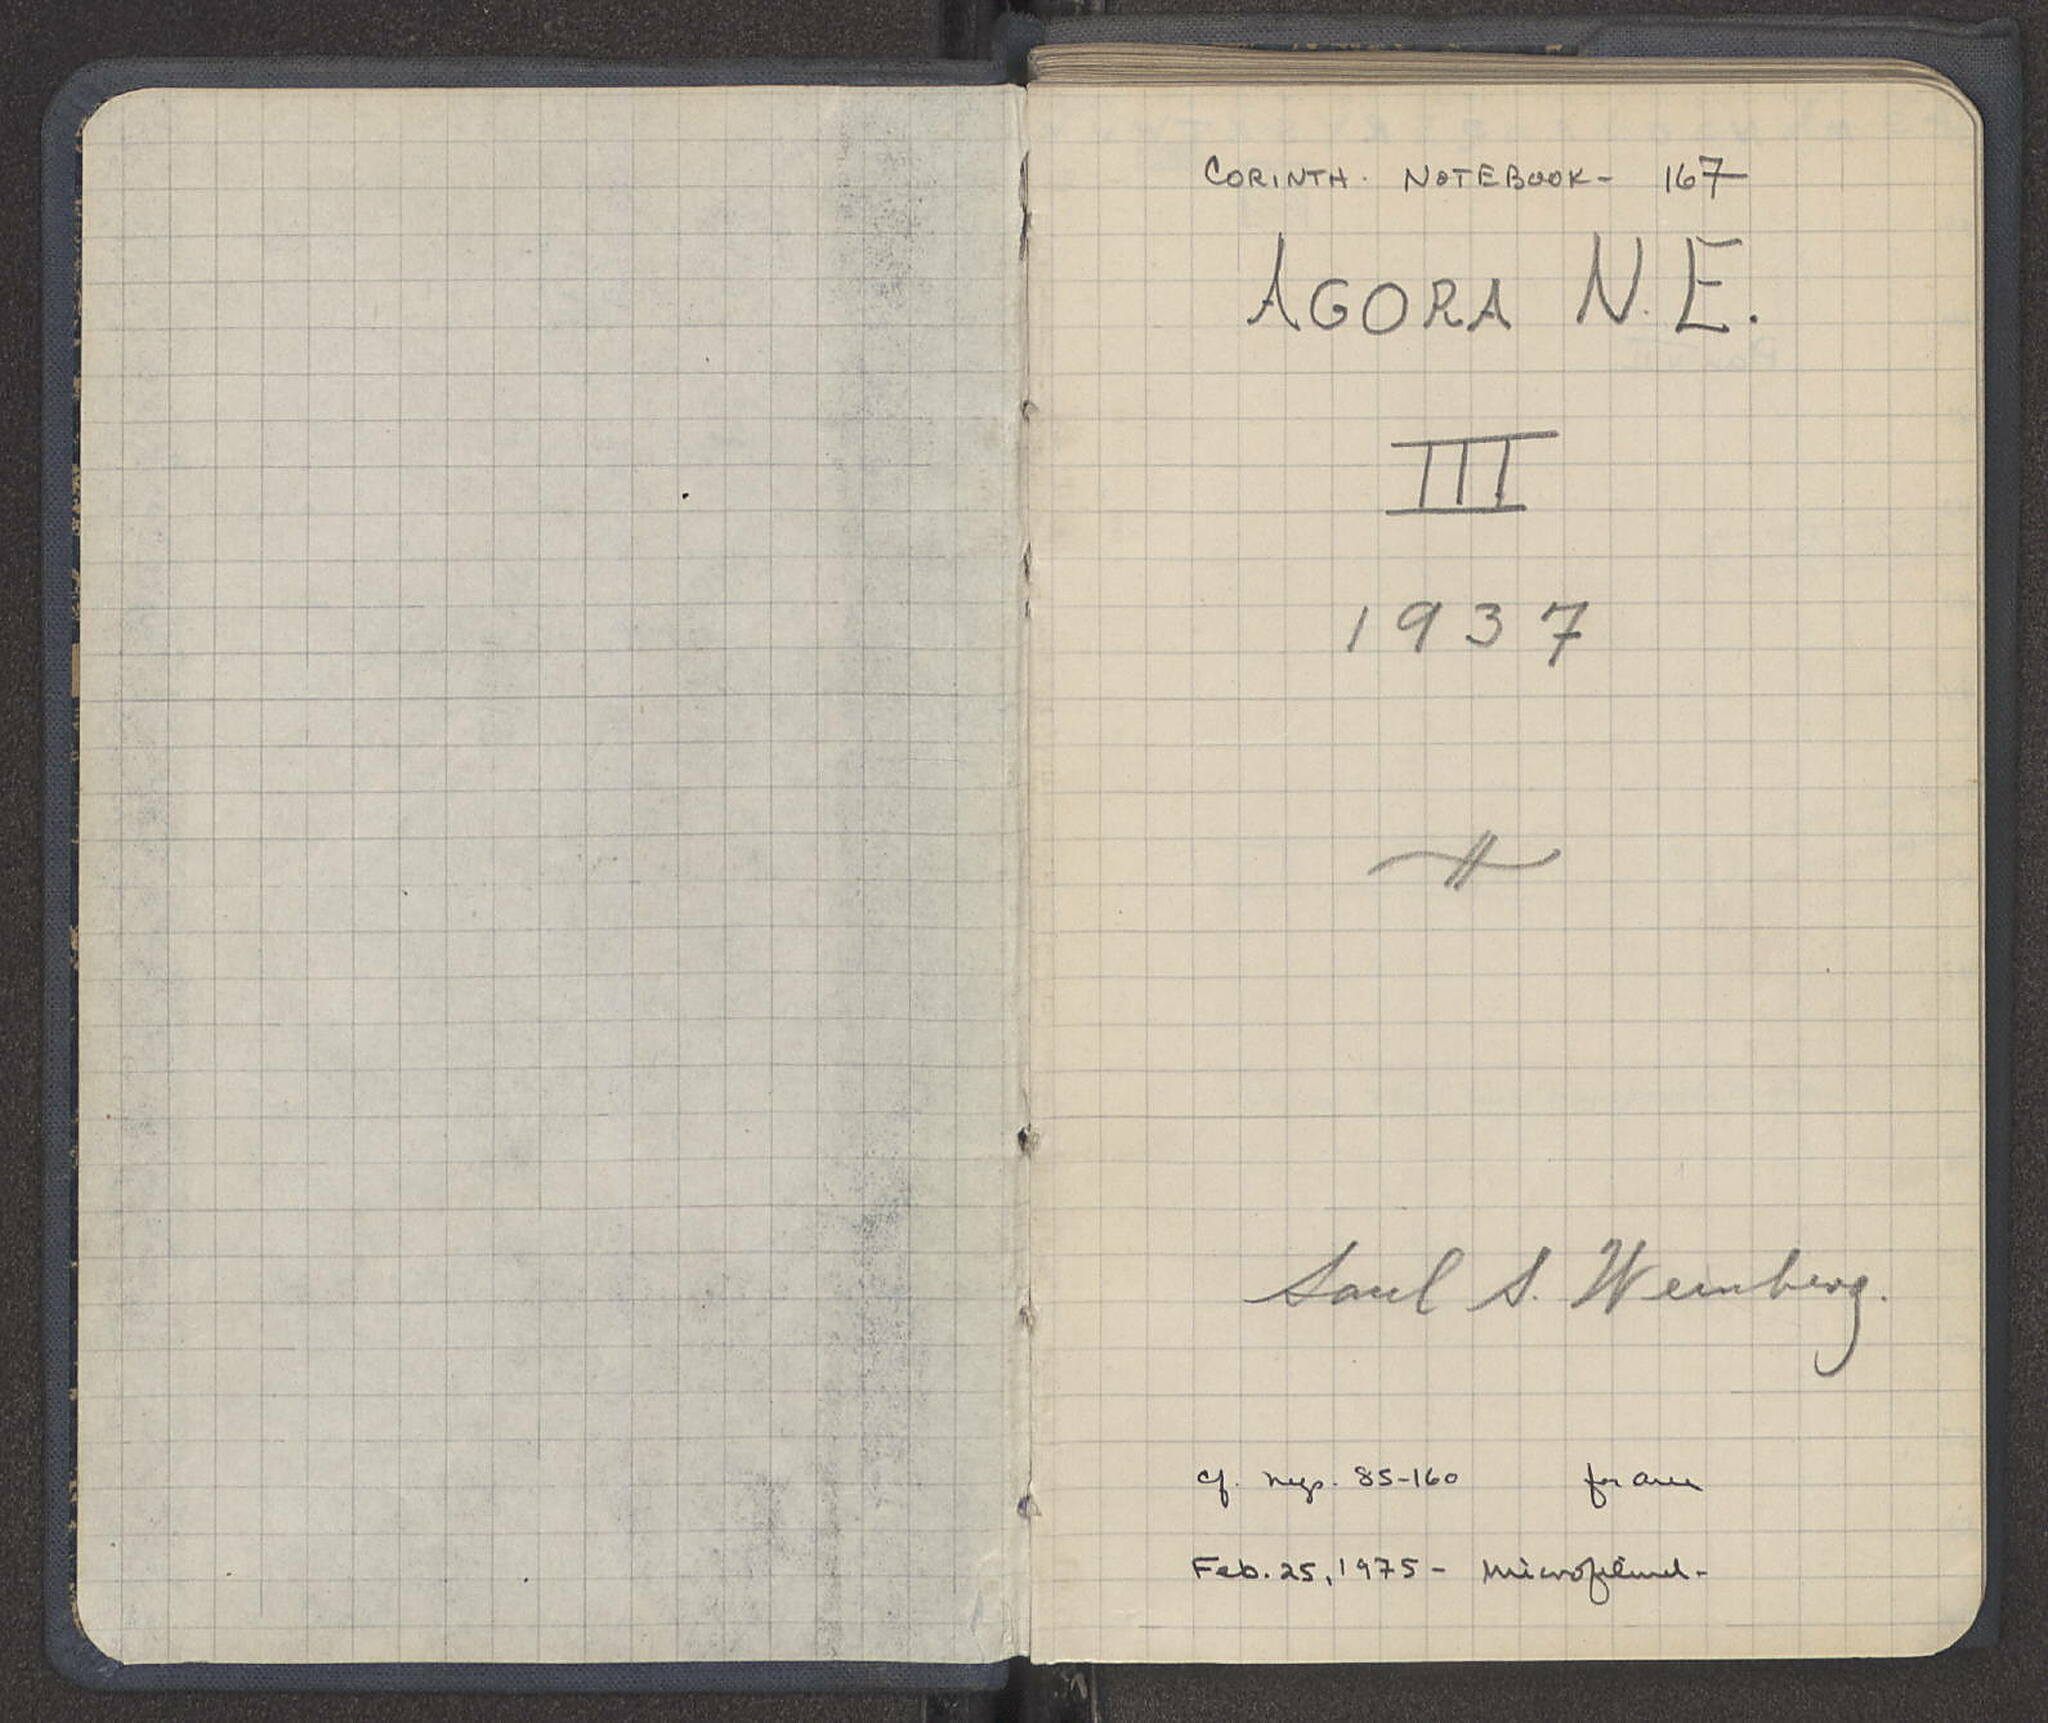 CORINTH. NOTEBOOK- 167
AGORA N.E.
III
1937
Saul S. Weinberg.
cf. negs. 85-160 for area
Feb. 25, 1975 - Microfilmed-